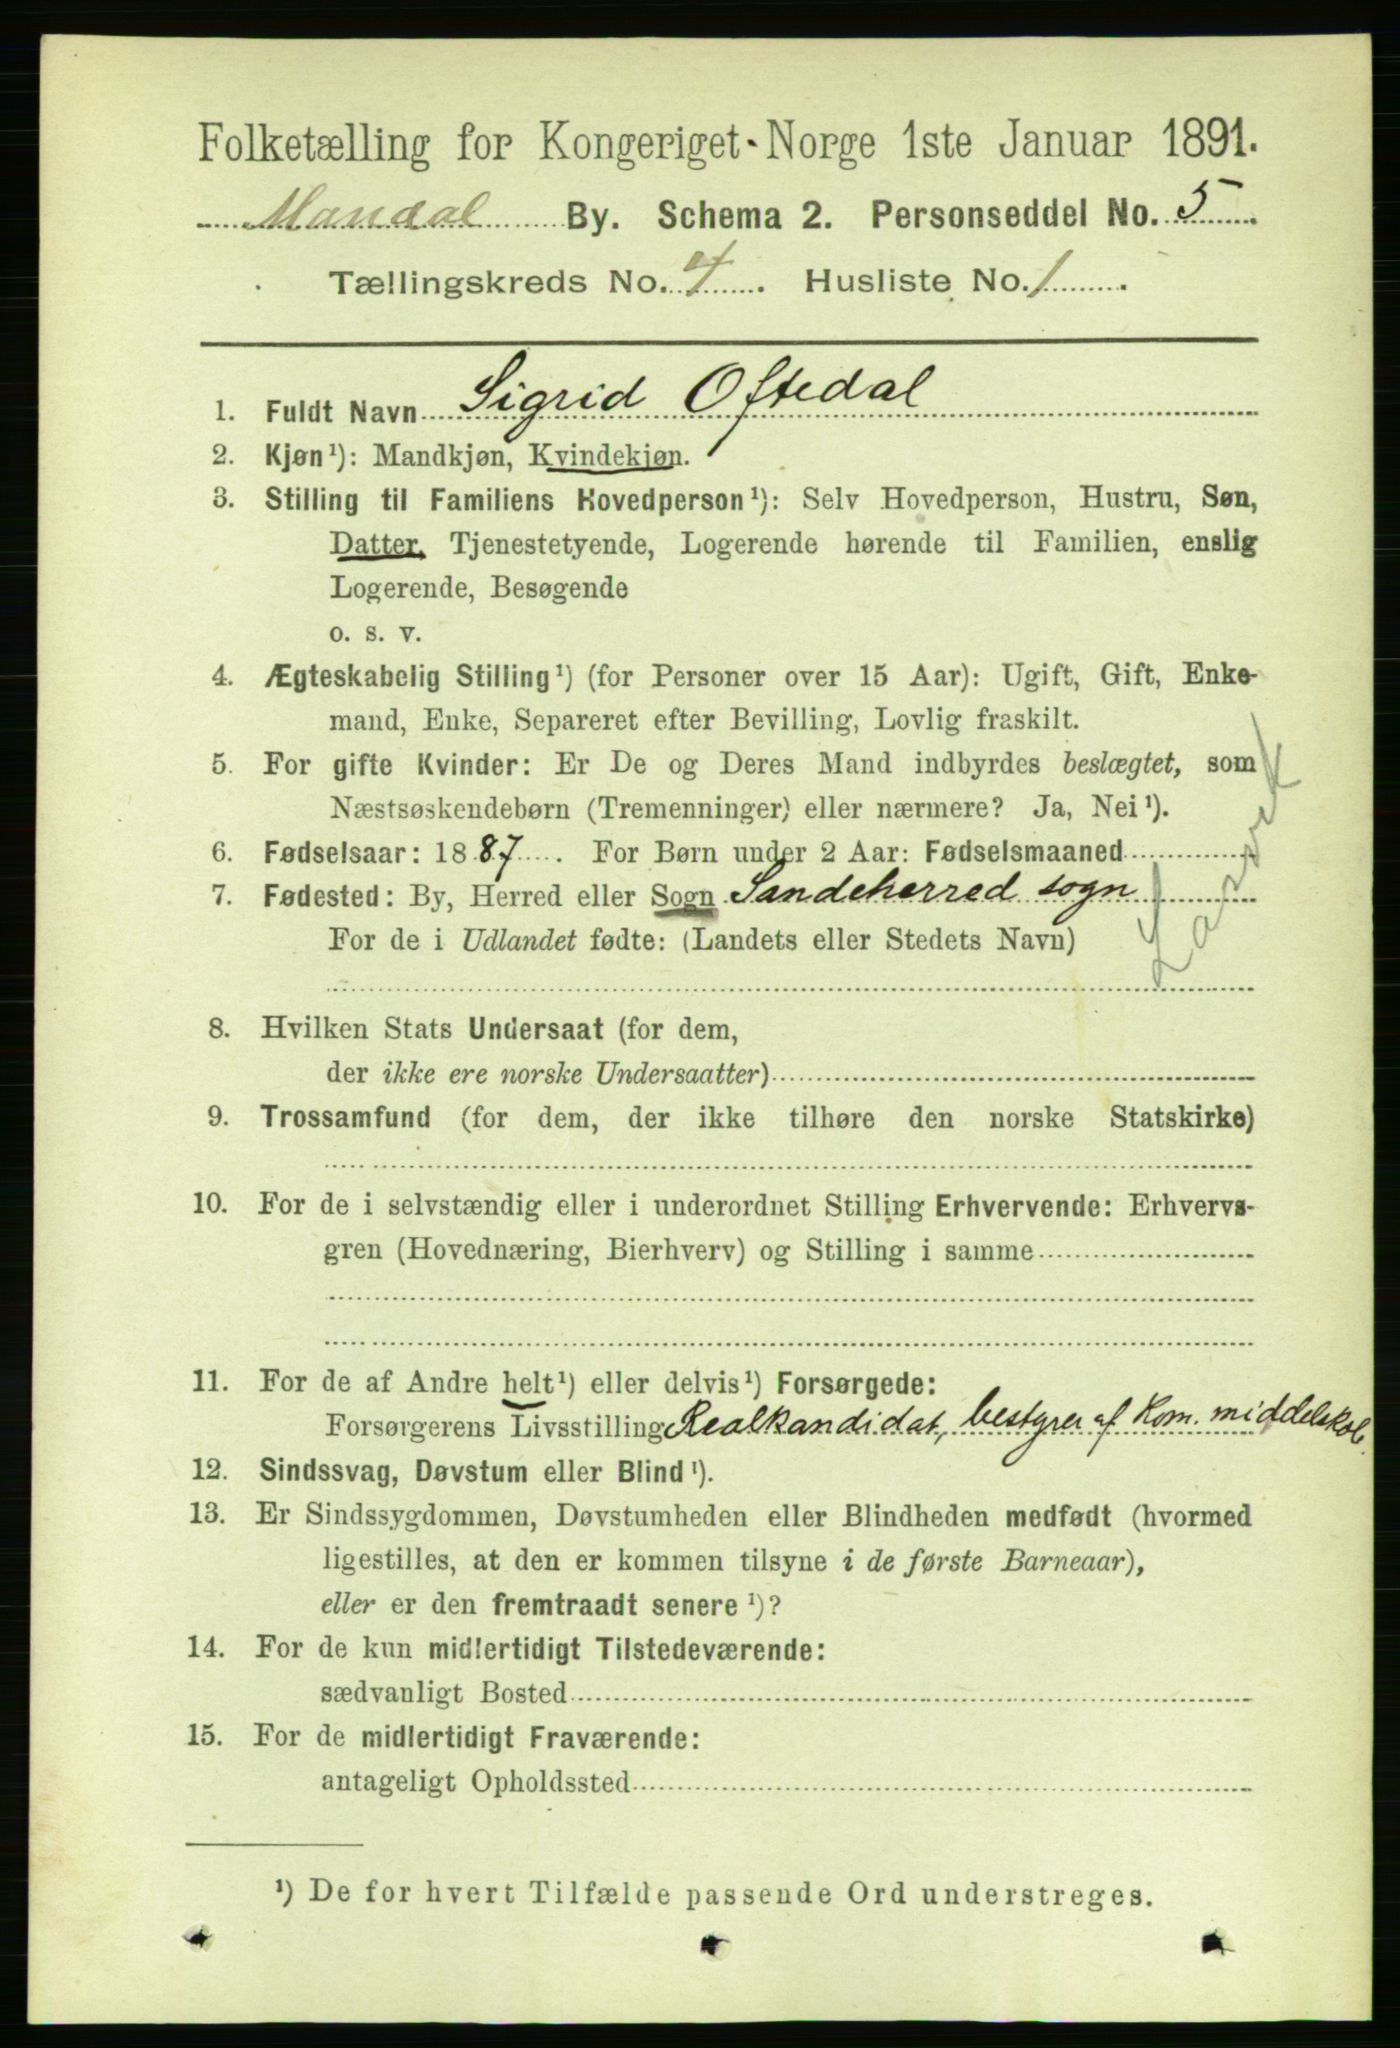 Folketælling for Kongeriget Norge 1ste Januar 1891.
Mandal By. Schema 2. Personseddel No. 5
Tællingskreds No. 4. Husliste No. 1.
1. Fuldt Navn Sigrid Oftedal
2. Kjøn¹): Mandkjøn, Kvindekjøn.
3. Stilling til Familiens Hovedperson¹): Selv Hovedperson, Hustru, Søn,
Datter, Tjenestetyende, Logerende hørende til Familien, enslig
Logerende, Besøgende
o. s. v.
4. Ægteskabelig Stilling¹) (for Personer over 15 Aar): Ugift, Gift, Enke-
mand, Enke, Separeret efter Bevilling, Lovlig fraskilt.
5. For gifte Kvinder: Er De og Deres Mand indbyrdes beslægtet, som
Næstsøskendebørn (Tremenninger) eller nærmere? Ja, Nei¹).
6. Fødselsaar: 1887. For Børn under 2 Aar: Fødselsmaaned
7. Fødested: By, Herred eller Sogn Sandeherred sogn
Larvik
For de i Udlandet fødte: (Landets eller Stedets Navn)
8. Hvilken Stats Undersaat (for dem,
der ikke ere norske Undersaatter)
9. Trossamfund (for dem, der ikke tilhøre den norske Statskirke)
10. For de i selvstændig eller i underordnet Stilling Erhvervende: Erhvervs-
gren (Hovednæring, Bierhverv) og Stilling i samme
11. For de af Andre helt¹) eller delvis¹) Forsørgede:
Forsørgerens Livsstilling Realkandidat, bestyrer af Kom. middelskole.
12. Sindssvag, Døvstum eller Blind¹).
13. Er Sindssygdommen, Døvstumheden eller Blindheden medfødt (hvormed
ligestilles, at den er kommen tilsyne i de første Barneaar),
eller er den fremtraadt senere¹)?
14. For de kun midlertidigt Tilstedeværende:
sædvanligt Bosted
15. For de midlertidigt Fraværende:
antageligt Opholdssted
¹) De for hvert Tilfælde passende Ord understreges.